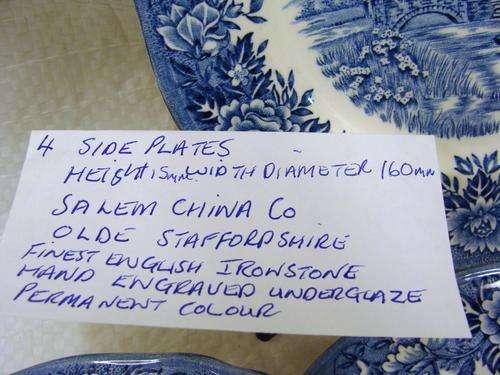 4 SIDE PLATES
HEIGHT 15mm. WIDTH DIAMETER 160mm
SALEM CHINA Co
OLDE STAFFORDSHIRE
FINEST ENGLISH IRONSTONE
HAND ENGRAVED UNDERGLAZE
PERMANENT COLOUR